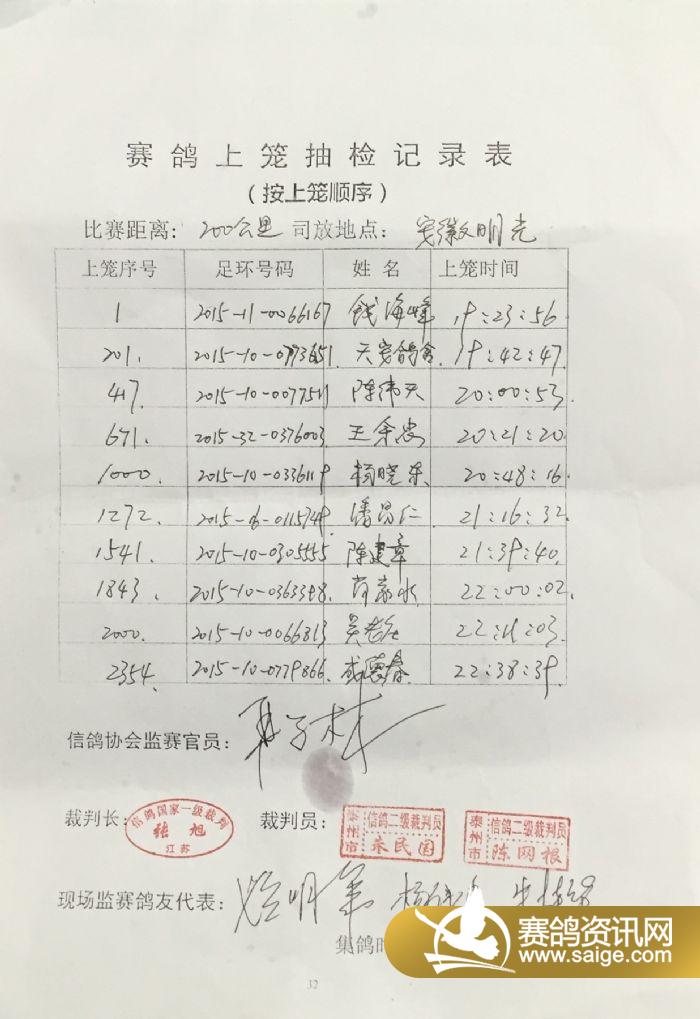 赛鸽上笼抽检记录表
（按上笼顺序）
比赛距离：200公里 司放地点：安徽明光
上笼序号 足环号码 姓名 上笼时间
1 2015-11-0066167 钱海峰 19:23:56
201. 2015-10-0773651 天宠鸽舍 19:42:47.
417. 2015-10-0077511 陈伟天 20:00:53.
671. 2015-32-0376003. 王余宏 20:21:20
1000. 2015-10-0336119 杨晓东 20:48:16
1272. 潘昌仁 21:16:32.
1541. 2015-10-0305555 陈建章 21:39:40.
1843. 2015-10-0363398. 肖家水 22:00:02.
2000. 2015-10-0066813 22:11:03.
2354. 2015-10-0779866. 22:38:39.
信鸽协会监赛官员：
裁判长： 信鸽国家一级裁判 张旭 江苏
裁判员： 泰州市 信鸽二级裁判员 泰州市 信鸽二级裁判员 陈网根
现场监赛鸽友代表：
集鸽时
赛鸽资讯网
www.saige.com
32